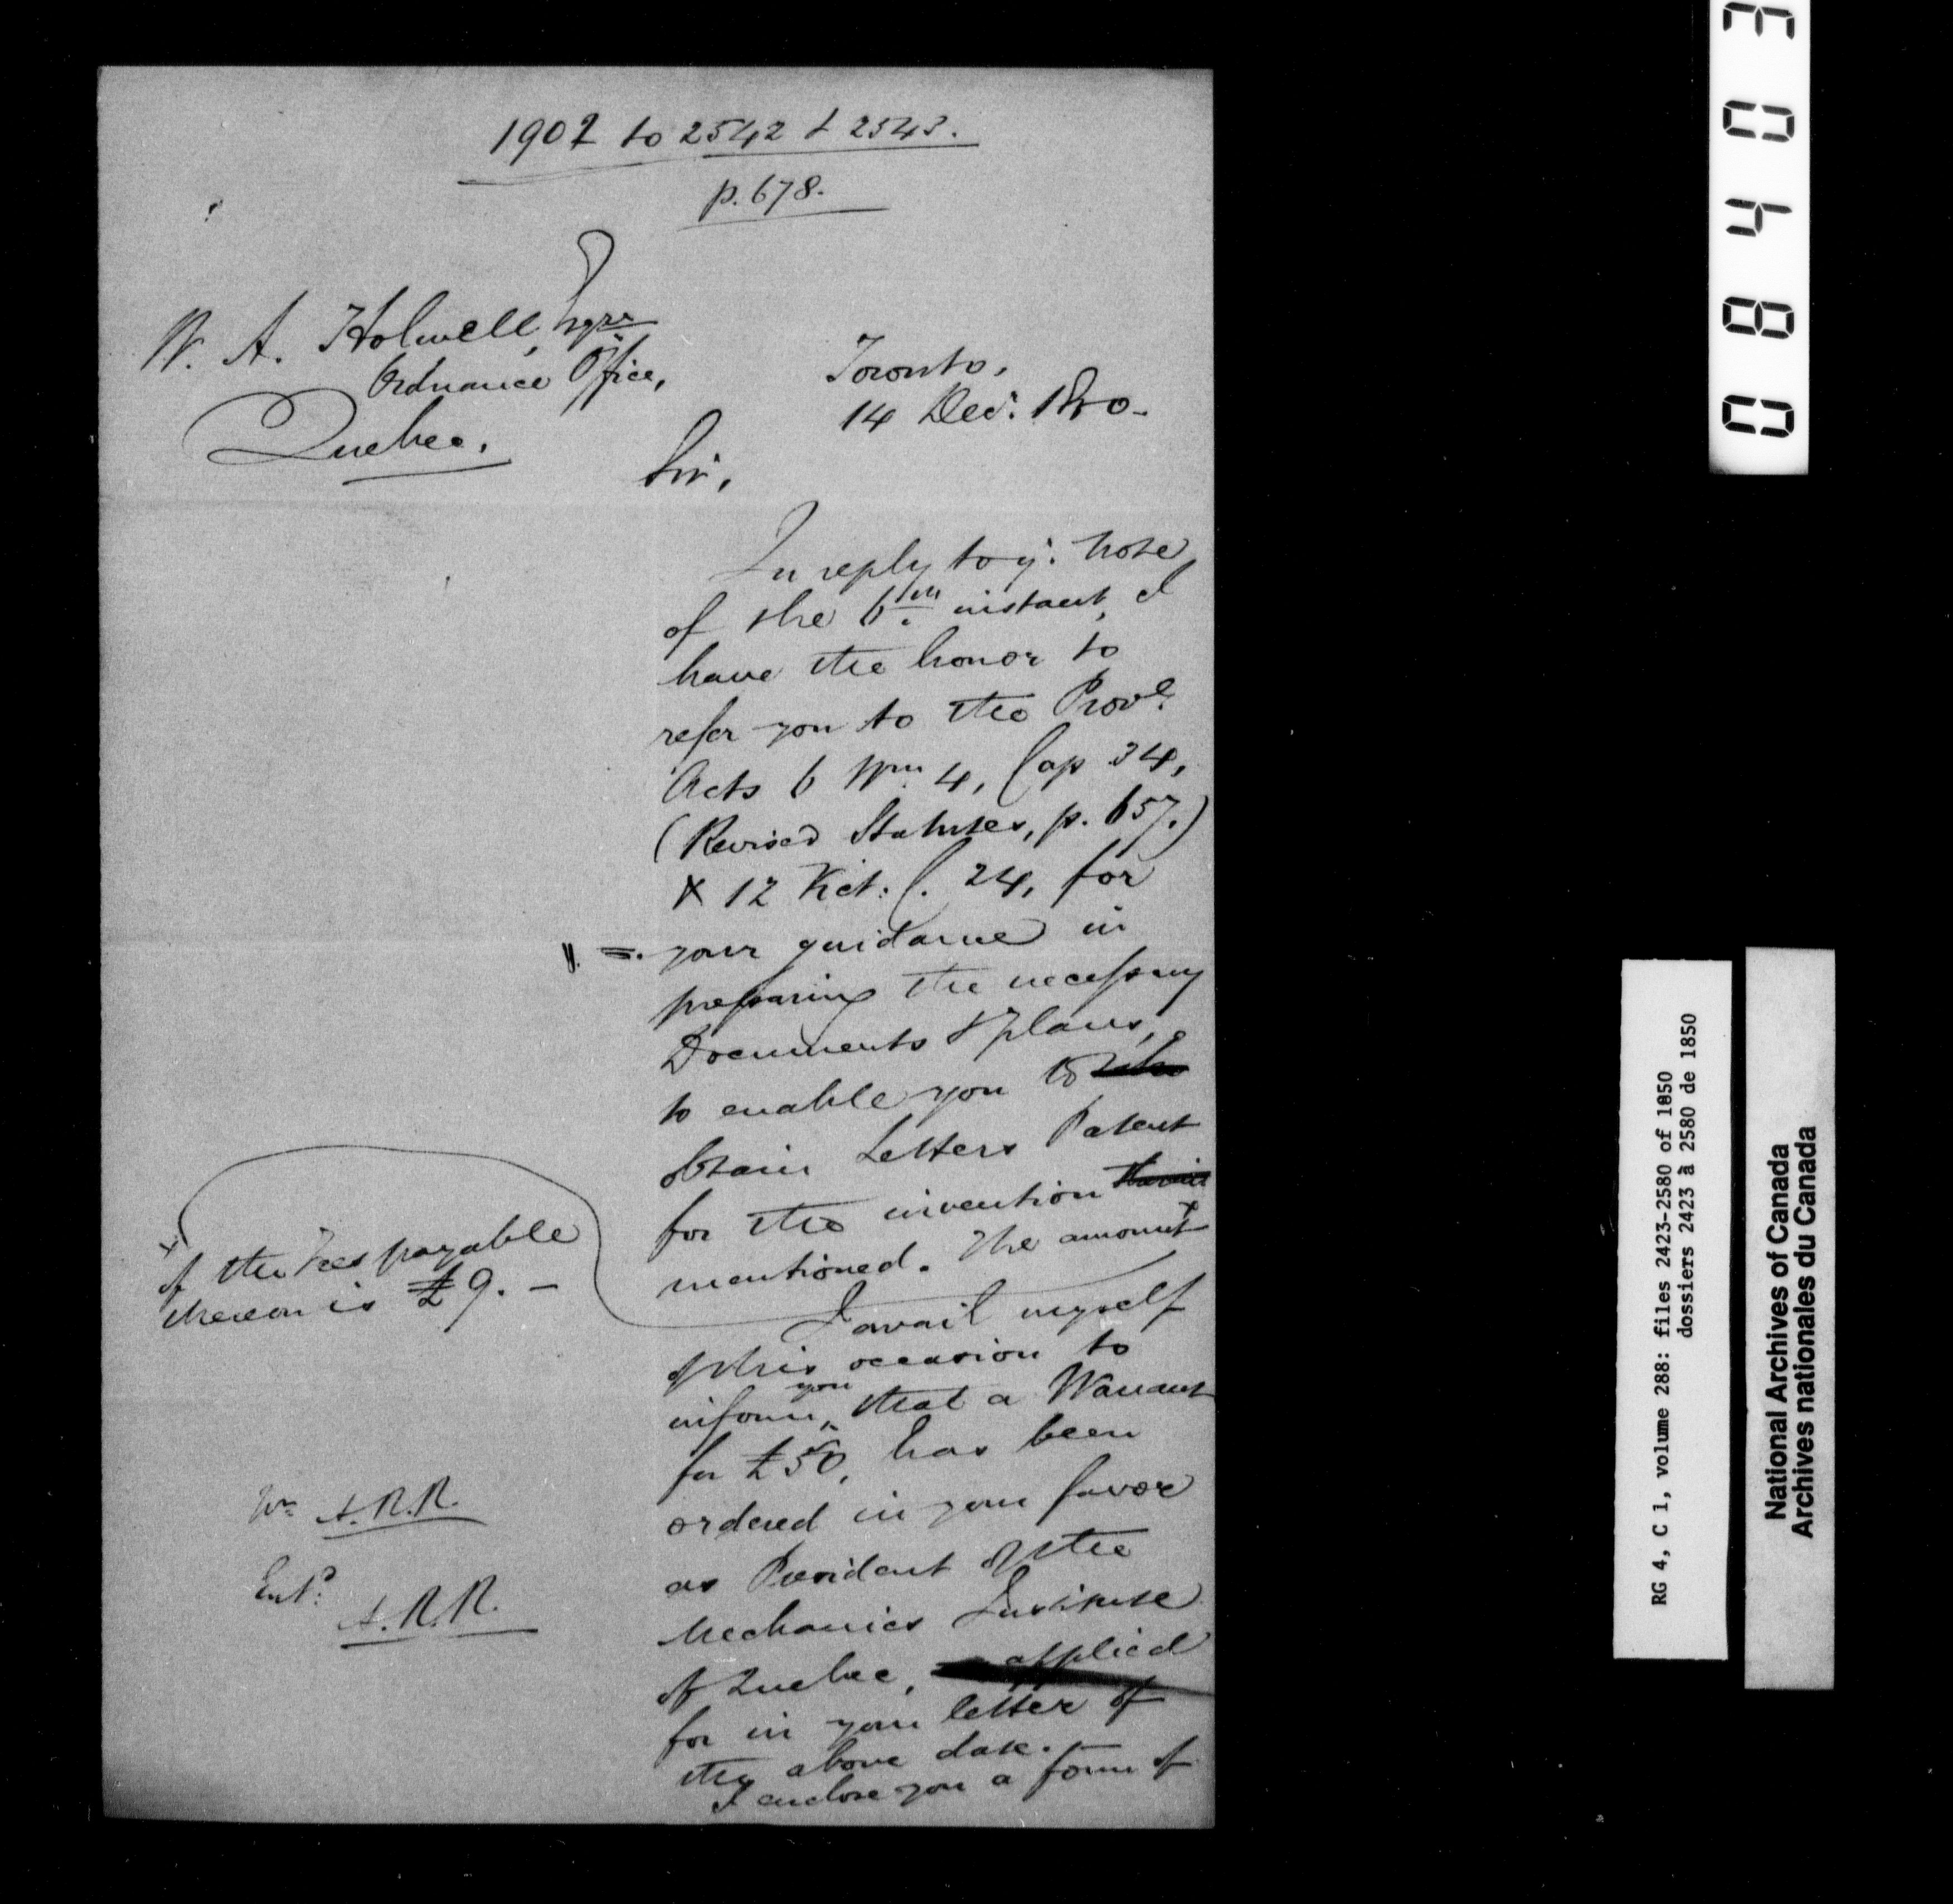 1902 to 2542 & 2543.
p. 678.
W. A. Holwell, Esqre
Ordnance Office,
Quebec.
Toronto,
14 Decr. 1850.
Sir,
In reply to yr. note
of the 6th instant, I
have the honor to
refer you to the Provl.
Acts 6 Wm. 4, Cap 34,
(Revised Statutes, p. 657.)
& 12 Vict: C. 24, for
your guidance in
preparing the necessary
Documents & plans,
to enable you to
obtain Letters Patent
for the invention
mentioned. The amount
x
x
of the Fees payable
thereon is £9. —
I avail myself
of this occasion to
inform you that a Warrant
for £50, has been
ordered in your favor
as President of the
Mechanics Institute
of Quebec, applied
for in your letter of
the above date.
I enclose you a form of
Wn A.R.R.
Entd. A.R.R.
0 8 4 0 3
RG 4, C 1, volume 288: files 2423-2580 of 1850
dossiers 2423 à 2580 de 1850
National Archives of Canada
Archives nationales du Canada